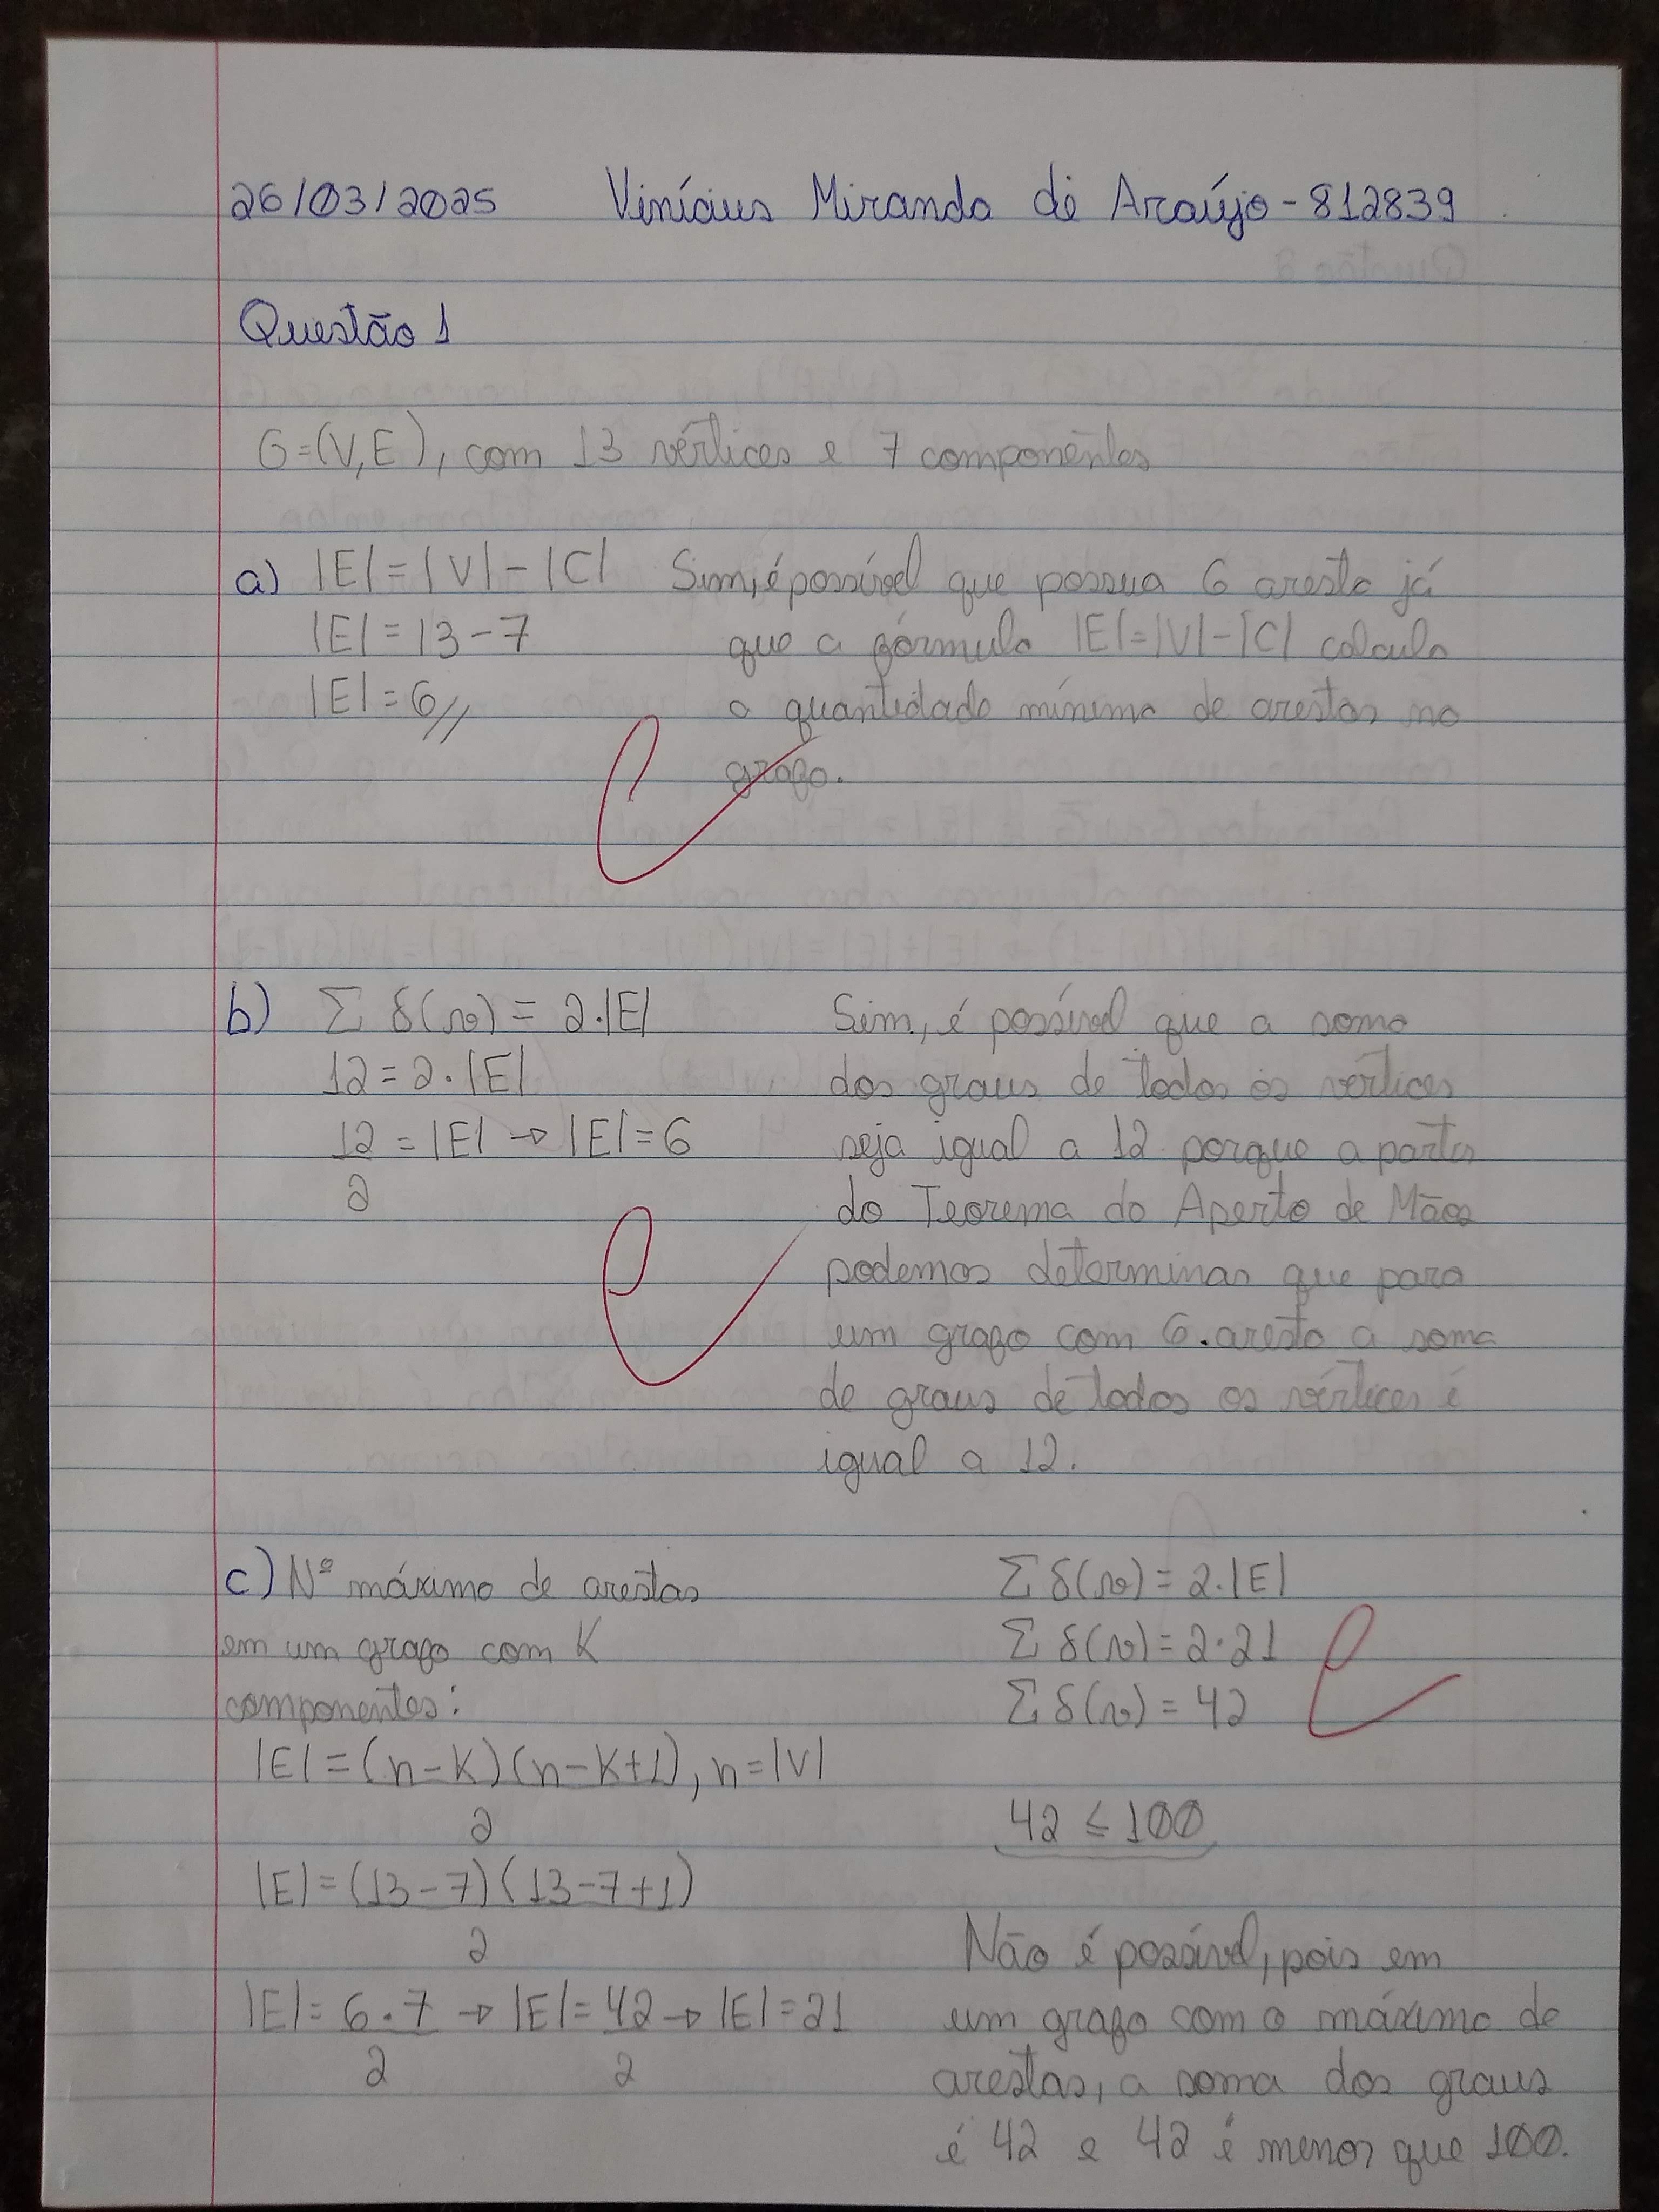 26/03/2025 Vinícius Miranda de Araújo - 812839
Questão 1
G=(V,E), com 13 vértices e 7 componentes
a) |E| = |V| - |C| Sim, é possível que possua 6 aresta já
|E| = 13 - 7 que a fórmula |E|=|V|-|C| calcula
|E| = 6// a quantidade mínima de arestas no
grafo.
b) Σ δ(v) = 2.|E| Sim, é possível que a soma
12 = 2.|E| dos graus de todos os vértices
12/2 = |E| → |E| = 6 seja igual a 12 porque a partir
do Teorema do Aperto de Mãos
podemos determinar que para
um grafo com 6 aresta a soma
de graus de todos os vértices é
igual a 12.
c) Nº máximo de arestas
em um grafo com K
componentes:
|E| = (n-K)(n-K+1)/2, n=|V|
|E| = (13-7)(13-7+1)/2
|E| = 6.7/2 → |E| = 42/2 → |E| = 21
Σ δ(v) = 2.|E|
Σ δ(v) = 2.21
Σ δ(v) = 42
42 ≤ 100
Não é possível, pois em
um grafo com o máximo de
arestas, a soma dos graus
é 42 e 42 é menor que 100.